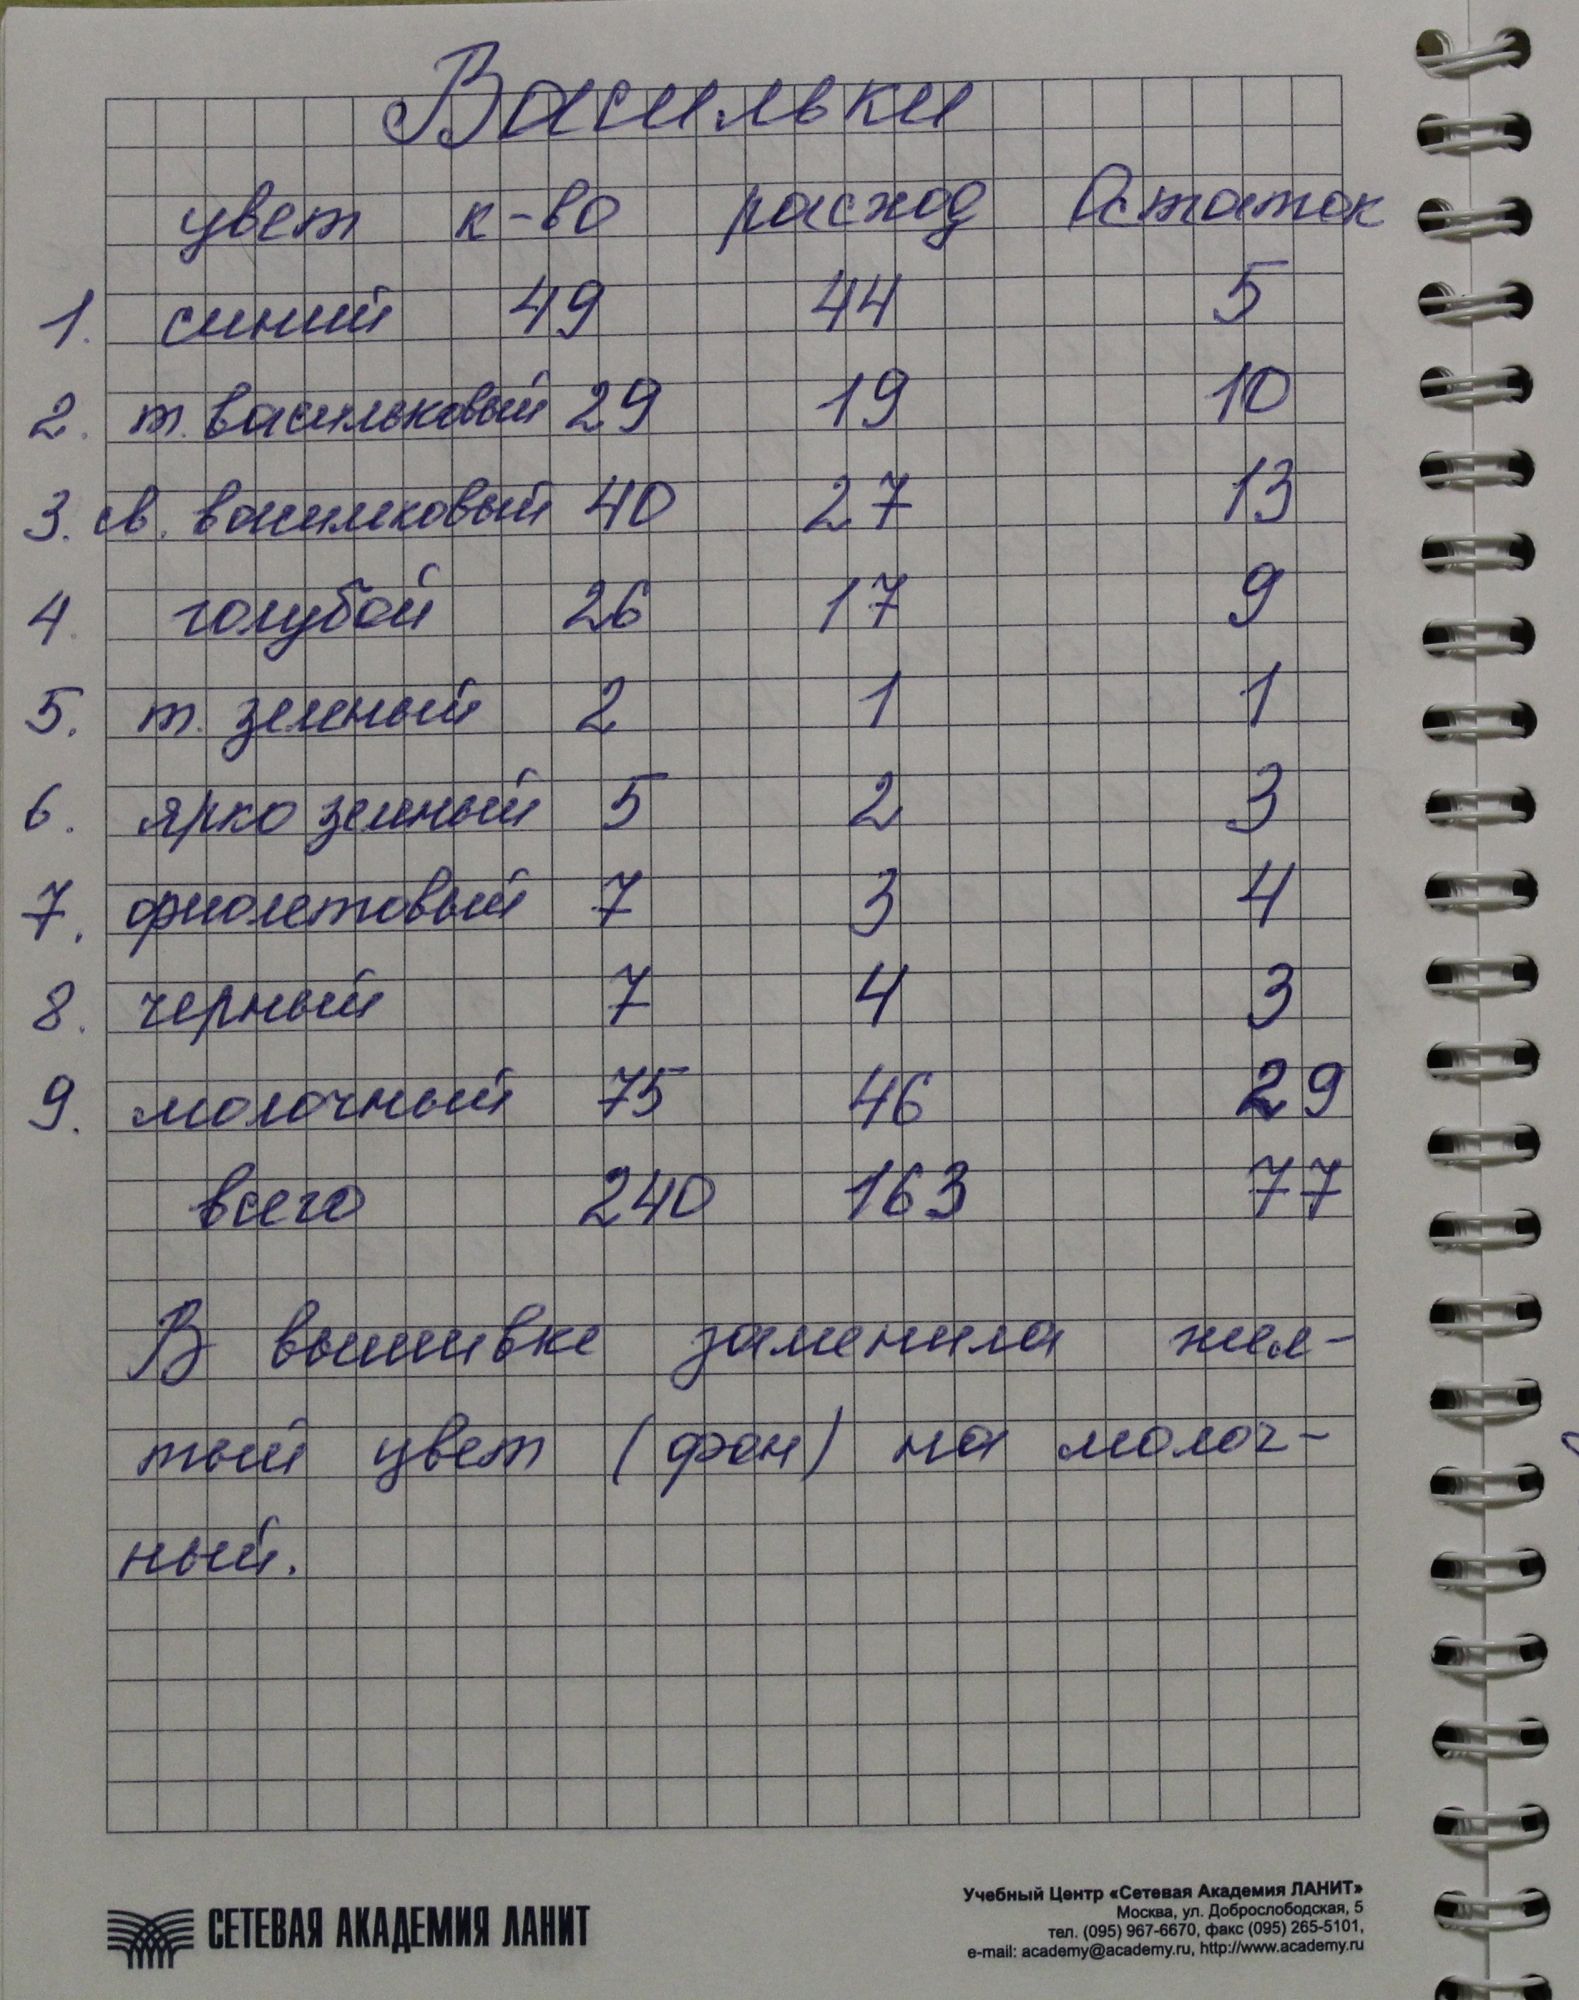 Васильки
цвет к-во расход Остаток
1. синий 49 44 5
2. т. васильковый 29 19 10
3. св. васильковый 40 27 13
4. голубой 26 17 9
5. т. зеленый 2 1 1
6. ярко зеленый 5 2 3
7. фиолетовый 7 3 4
8. черный 7 4 3
9. молочный 75 46 29
всего 240 163 77
В вышивке заменила жел-
тый цвет (фон) на молоч-
ный.
СЕТЕВАЯ АКАДЕМИЯ ЛАНИТ
Учебный Центр «Сетевая Академия ЛАНИТ»
Москва, ул. Доброслободская, 5
тел. (095) 967-6670, факс (095) 265-5101,
e-mail: academy@academy.ru, http://www.academy.ru